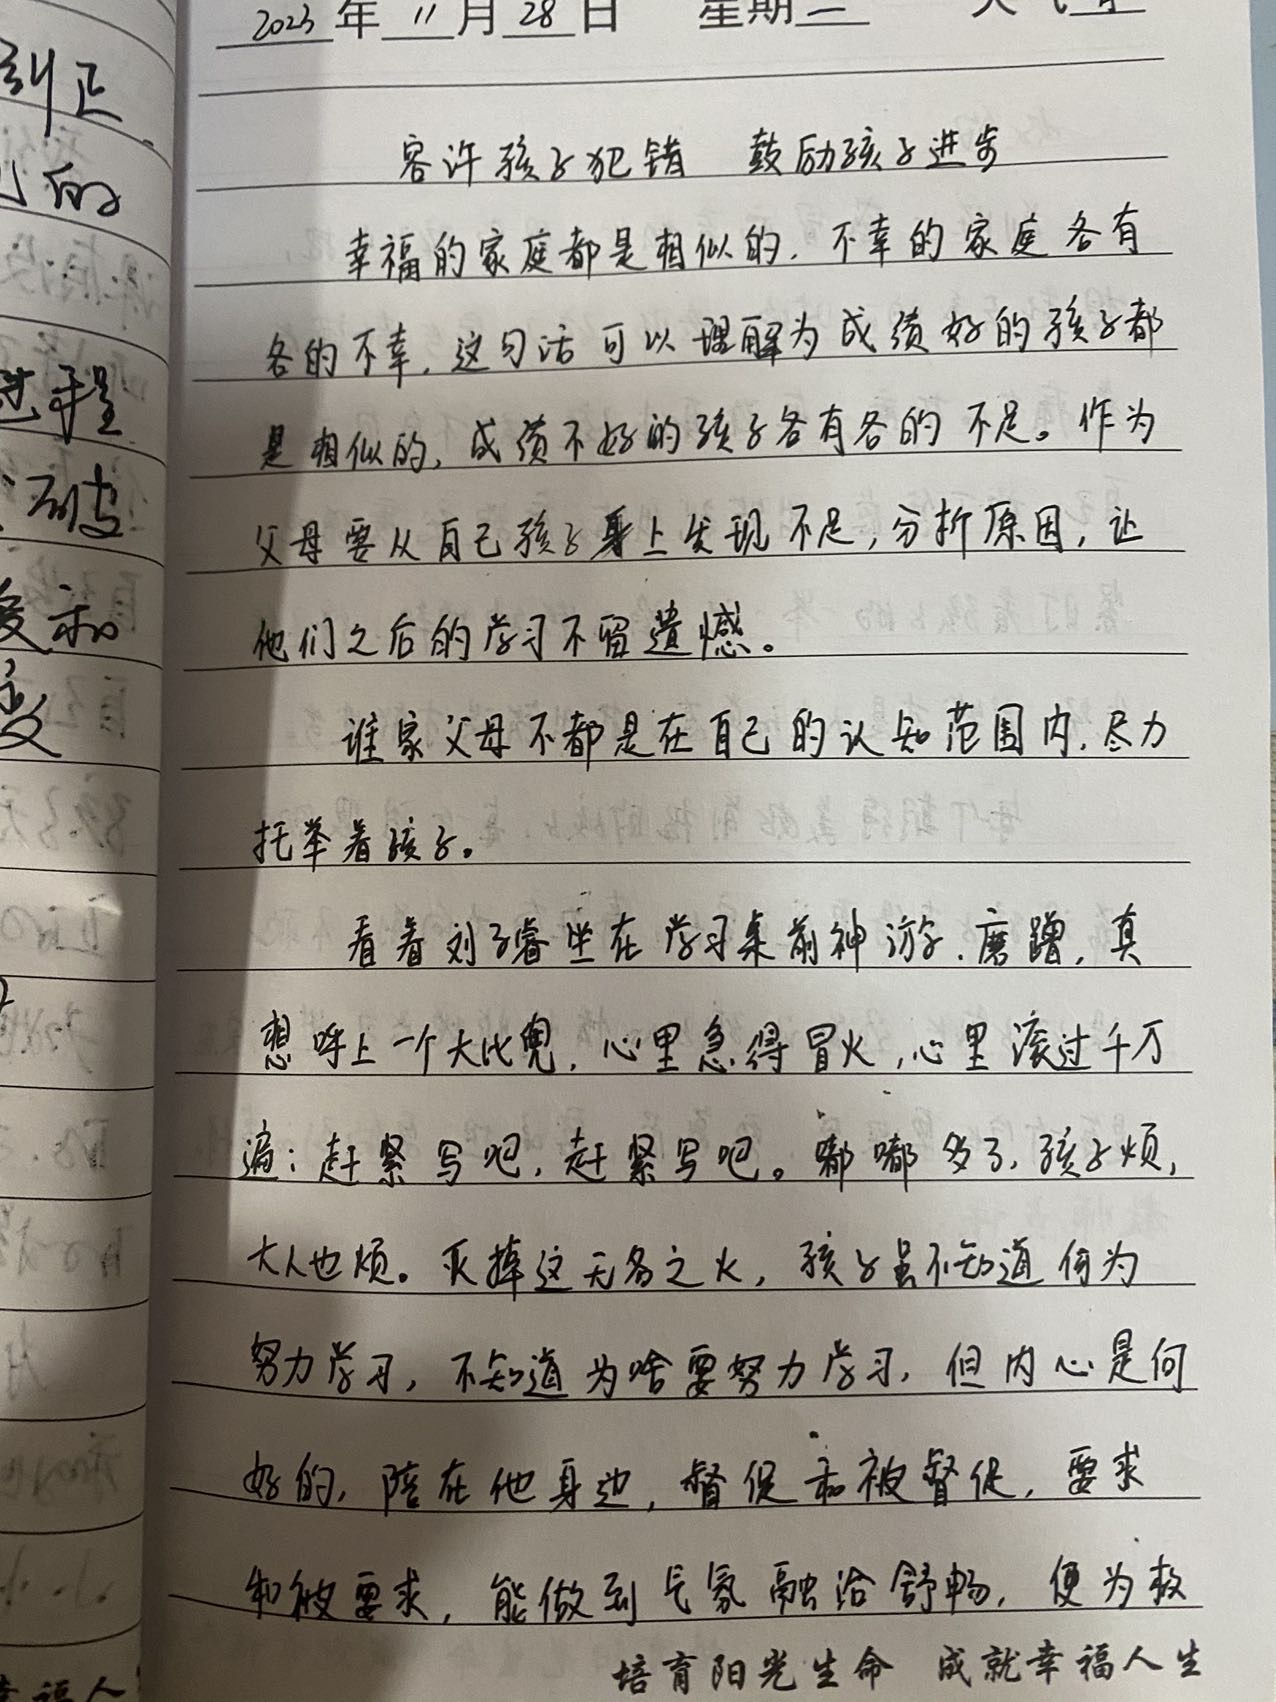 2023年11月28日 星期二
容许孩子犯错 鼓励孩子进步
幸福的家庭都是相似的，不幸的家庭各有
各的不幸，这句话可以理解为成绩好的孩子都
是相似的，成绩不好的孩子各有各的不足。作为
父母要从自己孩子身上发现不足，分析原因，让
他们之后的学习不留遗憾。
谁家父母不都是在自己的认知范围内，尽力
托举着孩子。
看着刘子睿坐在学习桌前神游、磨蹭，真
想呼上一个大比兜，心里急得冒火，心里滚过千万
遍：赶紧写吧，赶紧写吧。嘟嘟多了，孩子烦，
大人也烦。灭掉这无名之火，孩子虽不知道何为
努力学习，不知道为啥要努力学习，但内心是向
好的，陪在他身边，督促和被督促，要求
和被要求，能做到气氛融洽舒畅，便为极
培育阳光生命 成就幸福人生
纠正
的
过程
爱和
福人